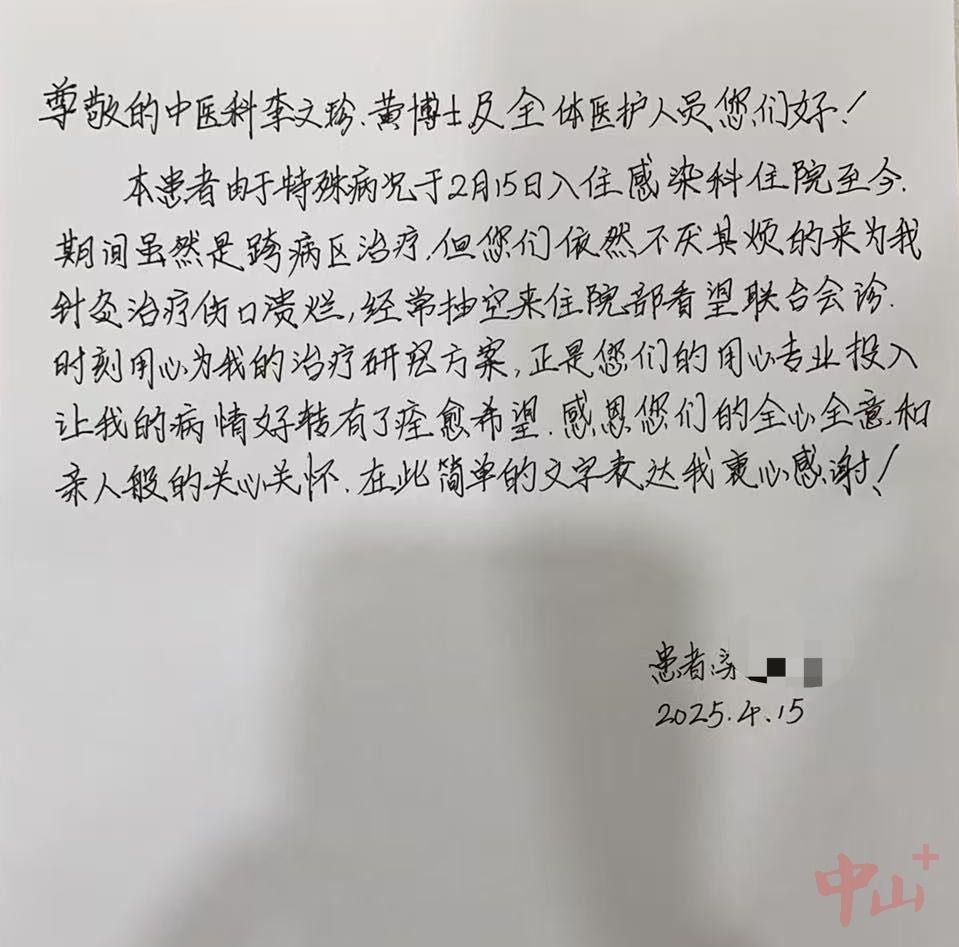 尊敬的中医科李文珍、黄博士及全体医护人员您们好！
本患者由于特殊病况于2月15日入住感染科住院至今.
期间虽然是跨病区治疗.但您们依然不厌其烦的来为我
针灸治疗伤口溃烂,经常抽空来住院部看望联合会诊.
时刻用心为我的治疗研究方案,正是您们的用心专业投入
让我的病情好转有了痊愈希望.感恩您们的全心全意和
亲人般的关心关怀.在此简单的文字表达我衷心感谢！
患者
2025.4.15
中山+